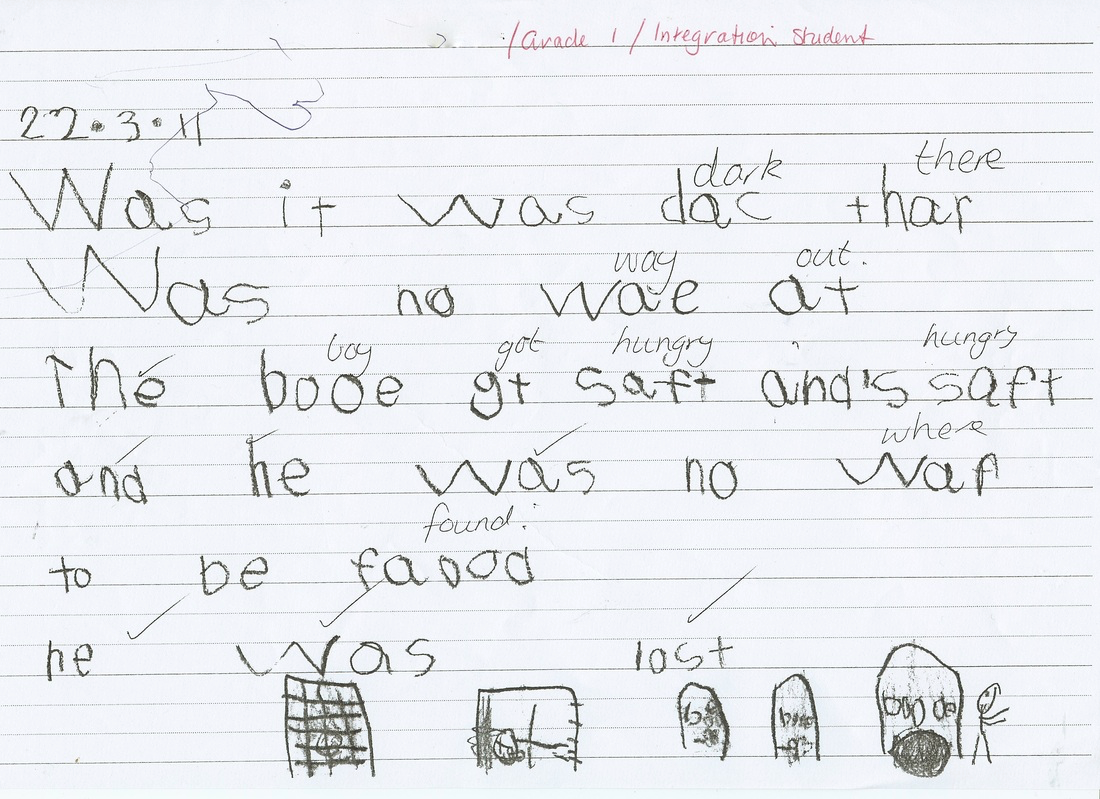 /Grade 1 / Integration Student
22.3.11
dark there
Was it was dac thar
way out.
Was no wae at
boy got hungry hungry
The booe gt saft and's saft
where
and he was no war
found.
to be favod
he was lost